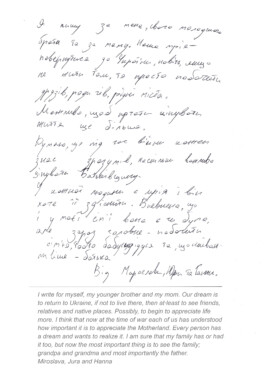 Я пишу за мене, свого молодшого
брата та за маму. Наша мрія -
повернутися до України, навіть якщо
не жити там, то просто побачити
друзів, родичів, рідні місця.
Можливо, щоб почати цінувати
життя ще більше.
Думаю, що під час війни кожен
з нас зрозумів, наскільки важливо
Батьківщину.
У кожної людини є мрія і вона
хоче її здійснити. Впевнена, що
і у моєї сім'ї вона є чи була,
але зараз головне - побачити
сім'ю, бабусю, дідуся та, щонайваж-
ливіше - батька.
Від Мирослави, Юри та Ганни.
I write for myself, my younger brother and my mom. Our dream is
to return to Ukraine, if not to live there, then at least to see friends,
relatives and native places. Possibly, to begin to appreciate life
more. I think that now at the time of war each of us has understood
how important it is to appreciate the Motherland. Every person has
a dream and wants to realize it. I am sure that my family has or had
it too, but now the most important thing is to see the family;
grandpa and grandma and most importantly the father.
Miroslava, Jura and Hanna